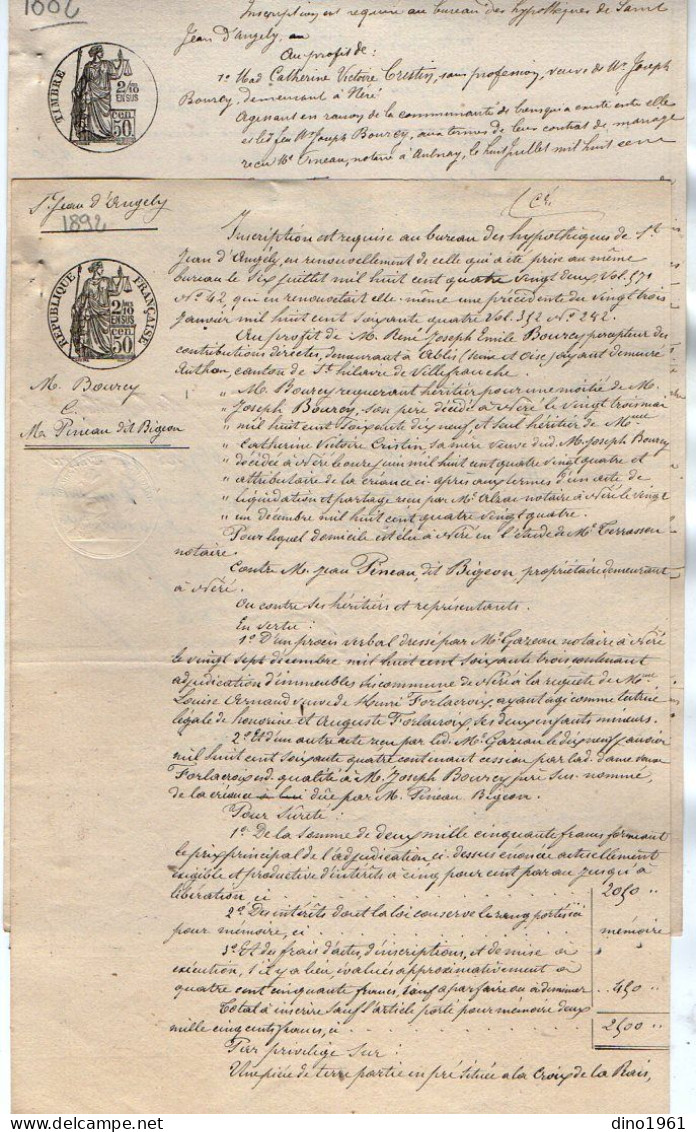 1882
Inscription est requise au bureau des hypothèques de Saint
Jean d'Angely, au
Au profit de :
1º Mad Catherine Victoire Cristin, sans profession, veuve de Mr Joseph
Bourcy, demeurant à Néré
Agissant en raison de la communauté de biens qui a existé entre elle
et led feu Mr Joseph Bourcy, aux termes de leur contrat de mariage
reçu Me Pineau, notaire à Aulnay, le huit juillet mil huit cent
TIMBRE
2/10
EN SUS
50 cen.
St Jean d'Angely
1892
RÉPUBLIQUE FRANÇAISE
2/10 EN SUS
50 cen.
M. Bourcy
C.
M. Pineau dit Bigeon
Inscription est requise au bureau des hypothèques de St
Jean d'Angély, en renouvellement de celle qui a été prise au même
bureau le six juillet mil huit cent quatre vingt deux, Vol. 571
Nº 42, qui en renouvelait elle-même une précédente du vingt trois
janvier mil huit cent soixante quatre Vol. 312 Nº 242.
Au profit de M. René Joseph Emile Bourcy percepteur des
contributions directes, demeurant à Ablis (Seine et Oise) ayant demeuré
Authon, canton de St hilaire de Villefranche.
" M. Bourcy requérant héritier pour une moitié de M.
" Joseph Bourcy, son père décédé à Néré le vingt trois mai
" mil huit cent soixante dix neuf et seul héritier de Mme
" Catherine Victoire Cristin sa mère veuve dud. M. Joseph Bourcy
" décédée à Néré le onze juin mil huit cent quatre vingt quatre et
" attributaire de la créance ci-après aux termes d'un acte de
" liquidation et partage reçu par Me notaire à Néré le vingt
" un décembre mil huit cent quatre vingt quatre.
Pour lequel domicile est élu à Néré en l'étude de Me Terrasson
notaire.
Contre M. Jean Pineau, dit Bigeon, propriétaire demeurant
à Néré.
Ou contre ses héritiers et représentants.
En vertu :
1º D'un procès verbal dressé par Me Gazeau notaire à Néré
le vingt sept décembre mil huit cent soixante trois contenant
adjudication d'immeubles sis commune de Néré à la requête de Mme
Louise Arnaud veuve de Henri Forlacroix, ayant agi comme tutrice
légale de honorine et Auguste Forlacroix ses deux enfants mineurs.
2º Et d'un autre acte reçu par led. Me Gazeau le dix neuf janvier
mil huit cent soixante quatre contenant cession par lad. dame veuve
Forlacroix esd. qualité à M. Joseph Bourcy père sus-nommé,
de la créance à lui dûe par M. Pineau Bigeon.
Pour Sûreté :
1º De la somme de deux mille cinquante francs formant
le prix principal de l'adjudication ci-dessus énoncée actuellement
exigible et productive d'intérêts à cinq pour cent par an jusqu'à
libération, ci . . . . . 2050 "
2º Des intérêts dont la loi conserve le rang portés ici
pour mémoire, ci . . . . . mémoire
3º Et des frais d'actes, d'inscriptions, et de mise à
exécution, s'il y a lieu, évalués approximativement à
quatre cent cinquante francs, sauf à parfaire ou à diminuer . . 450 "
Total à inscrire sauf l'article porté pour mémoire deux
mille cinq cents francs, ci . . . . . 2500 "
Par privilège sur :
Une pièce de terre partie en pré située à la Croix de la Rais,
dino1961